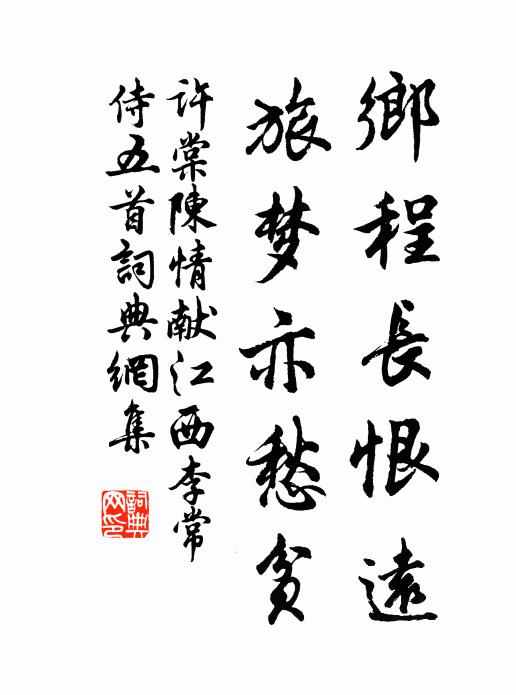 鄉程長恨遠
旅梦亦愁貧
許棠陳情献江西李常
侍五首詞典網集
詞典网印